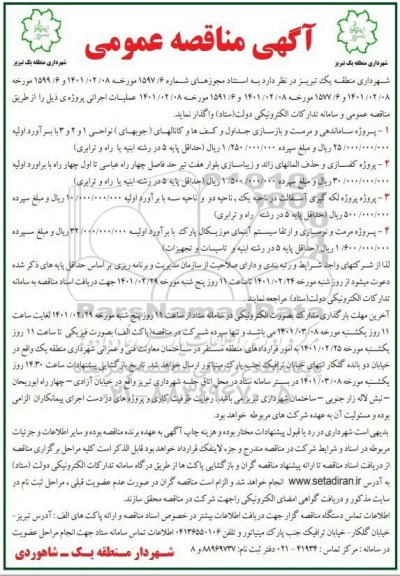 آگهی مناقصه عمومی
شهرداری منطقه یک تبریز
شهرداری منطقه یک تبریز
شهرداری منطقـه یک تبریـز در نظر دارد به استناد مجوزهـای شماره ۱۵۹۷/۶ مورخـه ۱۴۰۱/۰۲/۰۸ و ۱۵۹۹/۶ مورخه
۱۴۰۱/۰۲/۰۸ و ۱۵۷۷/۶ مورخه ۱۴۰۱/۰۲/۰۸ و ۱۵۹۱/۶ مورخه ۱۴۰۱/۰۲/۰۸ عملیات اجرائی پروژه ی ذیل را از طریق
مناقصه عمومی و سامانه تدارکات الکترونیکی دولت(ستاد) واگذار نماید.
۱ - پـروژه سـاماندهی و مرمـت و بازسـازی جـداول و کـف ها و کانالهـای ( جویهـای) نواحـی ۱ و ۲ و ۳ با بـرآورد اولیه
۲۵/۰۰۰/۰۰۰/۰۰۰ ریال و مبلغ سپرده ۱/۲۵۰/۰۰۰/۰۰۰ ریال (حداقل پایه ۵ در رشته ابنیه یا راه و ترابری)
۲ - پروژه کفسازی و حذف المانهای زائد و زیباسازی بلوار هفت تیر حد فاصل چهار راه عباسی تا اول چهار راه با براورد اولیه
۳۰/۰۰۰/۰۰۰/۰۰۰ ریال و مبلغ سپرده ۱/۵۰۰/۰۰۰/۰۰۰ ریال (حداقل پایه ۵ در رشته ابنیه یا راه و ترابری)
۳ - پروژه لکه گیری آسـفالت در ناحیه یک ، ناحیه دو و ناحیه سـه با برآورد اولیه ۱۰/۰۰۰/۰۰۰/۰۰۰ ریال و مبلغ سپرده
۵۰۰/۰۰۰/۰۰۰ ریال (حداقل پایه ۵ در رشته راه و ترابری)
۴ - پـروژه مرمـت و نوسـازی و ارتقا سیسـتم آبنمای موزیـکال پارک با بـرآورد اولیـه ۳۲/۰۰۰/۰۰۰/۰۰۰ ریال و مبلغ سـپرده
۱/۶۰۰/۰۰۰/۰۰۰ ریال (حداقل پایه ۵ در رشته ابنیه و تاسیسات و تجهیزات)
لذا از شـرکتهای واجد شـرایط و رتبه بندی و دارای صلاحیت از سازمان مدیریت و برنامه ریزی بر اساس حداقل پایه های ذکر شده
دعوت میشود از روز شنبه مورخه ۱۴۰۱/۰۲/۲۴ تاساعت ۱۱ روز پنج شنبه مورخه ۱۴۰۱/۰۲/۲۹ جهت دریافت اسناد مناقصه به سامانه
تدارکات الکترونیکی دولت(ستاد) مراجعه نمایند.
آخرین مهلت بارگذاری مدارکات بصورت الکترونیکی در سامانه ستاد از ساعت ۱۱ روز پنج شنبه مورخه ۱۴۰۱/۰۲/۲۹ لغایت ساعت
۱۱ روز یکشـنبه مورخه ۱۴۰۱/۰۳/۰۸ می باشـد و تنها سپرده شـرکت در مناقصه(پاکت الف) بصورت فیزیکی تا ساعت ۱۱ روز
یکشنبه مورخه ۱۴۰۱/۰۲/۲۵ به امور قراردادهای منطقه مستقر در ساختمان معاونت فنی و عمرانی شهرداری منطقه یک واقع در
خیابان دو بانده گلکار انتهای خیابان ترافیک جنب پارک مینیاتور ارسال خواهد شد. تاریخ بازگشایی پیشنهادات ساعت ۱۴:۳۰ روز
یکشنبه مورخه ۱۴۰۱/۰۳/۰۸ در بستر سامانه ستاد در محل اتاق جلسه شهرداری تبریز واقع در خیابان آزادی – چهار راه ابوریحان
– نبش لاله زار جنوبی – ساختمان شهرداری تبریز می باشد. رعایت ظرفیت کاری و پروژه های در دست اجرای پیمانکاران الزامی
بوده و مسئولیت آن به عهده شرکت های مربوطه خواهد بود.
بدیهی است شهرداری در رد یا قبول پیشنهادات مختار بوده و هزینه چاپ آگهی به عهده برنده مناقصه بوده و سایر اطلاعات و جزئیات
مربوطه در اسناد و شرایط شرکت در مناقصه مندرج و جزء لاینفک قرارداد خواهد بود قابل الذکر است کلیه مراحل برگزاری مناقصه
از دریافت اسناد مناقصه تا ارائه پیشنهاد مناقصه گران و بازگشایی پاکت ها از طریق درگاه سامانه تدارکات الکترونیکی دولت (ستاد)
به آدرس www.setadiran.ir انجام خواهد شد و الزام است مناقصه گران در صورت عدم عضویت قبلی ، مراحل ثبت نام در
سایت مذکور و دریافت گواهی امضای الکترونیکی راجهت شرکت در مناقصه محقق سازند.
اطلاعات تماس دستگاه مناقصه گزار جهت دریافت اطلاعات بیشتر در خصوص اسناد مناقصه و ارائه پاکت های الف : آدرس تبریز–
خیابان گلکار - خیابان ترافیک جنب پارک مینیاتور و تلفن ۰۴۱۳۶۵۵۰۱۰۶ اطلاعات تماس سامانه ستاد جهت انجام مراحل عضویت
در سامانه : مرکز تماس : ۴۱۹۳۴ - ۰۲۱ دفتر ثبت نام: ۸۸۹۶۹۷۳۷ و ۸
شهردار منطقه یک – شاهوردی